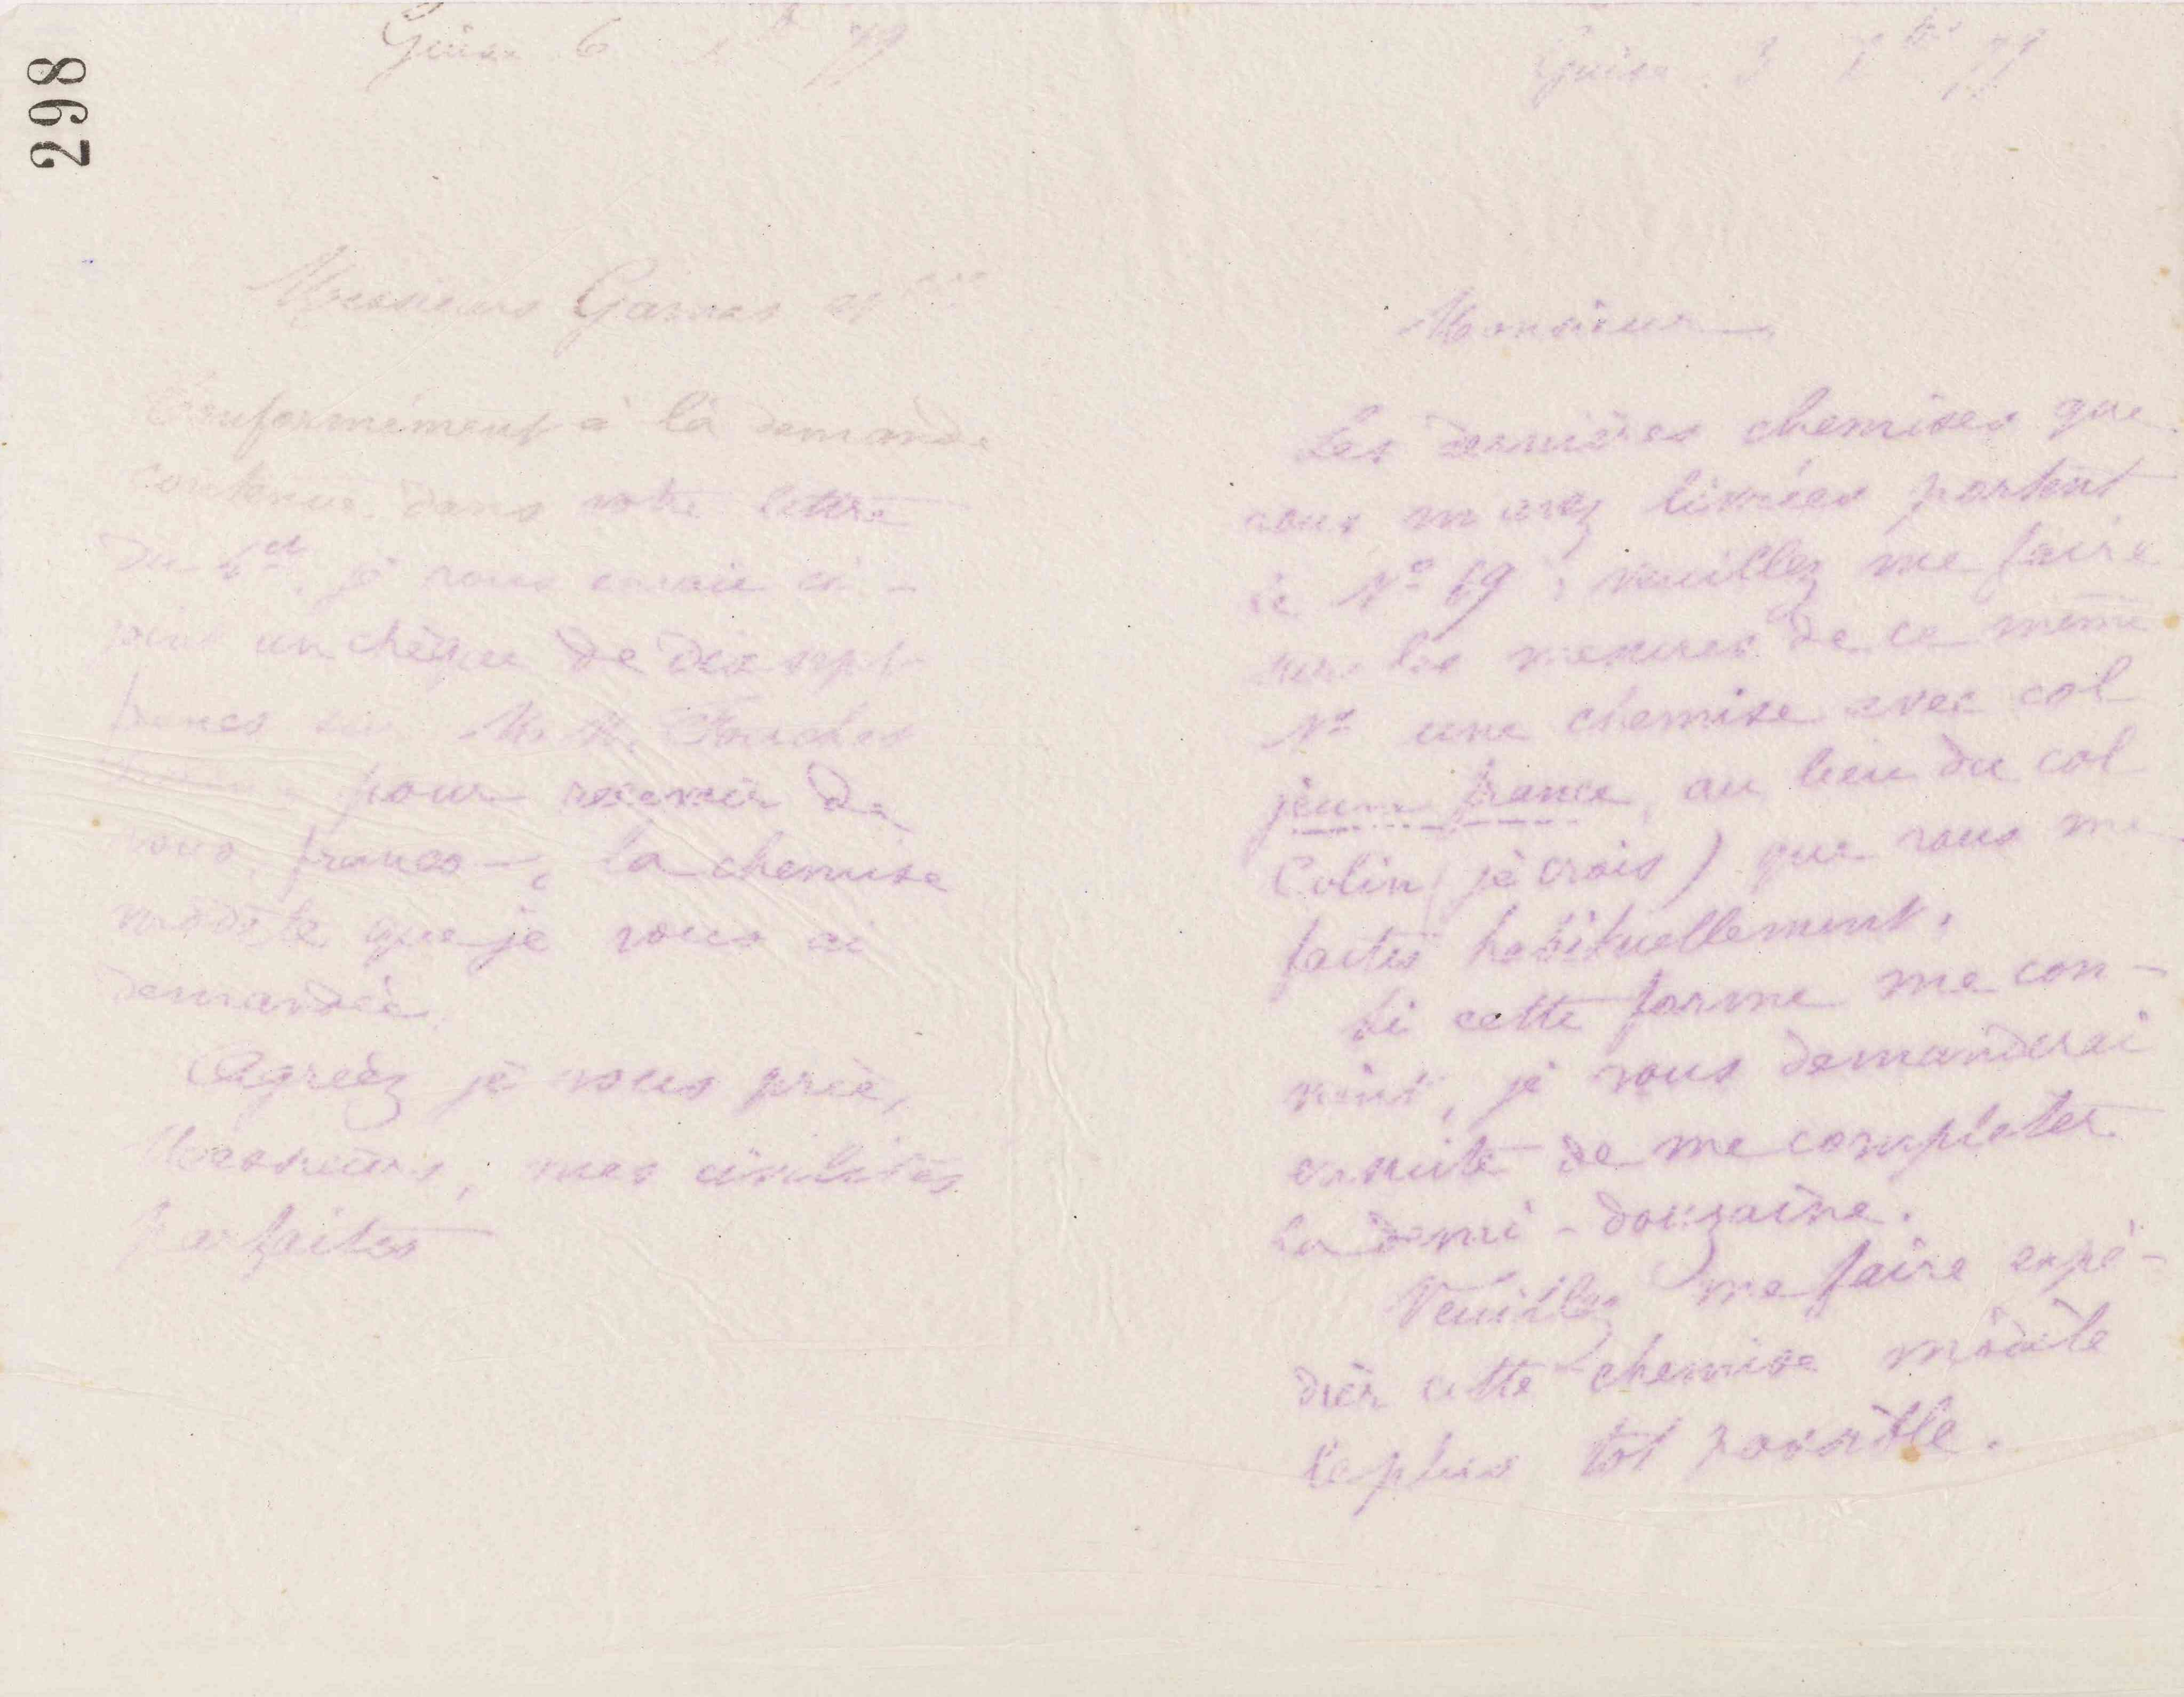 298
Guise 6 79
Messieurs
Conformément à la demande
contenue dans votre lettre
du je vous envoie ci-
joint un chèque de dix sept
francs sur
pour recevoir de
vous, franco, la chemise
modèle que je vous ai
demandée.
Agréez je vous prie,
Messieurs, mes civilités
parfaites
Guise 3 79
Monsieur
Les dernières chemises que
vous m'avez livrées portent
le N° 69 ; veuillez me faire
sur les mesures de ce même
N° une chemise avec col
jeune france, au lieu du col
Colin (je crois) que vous me
faites habituellement.
Si cette forme me con-
vient, je vous demanderai
ensuite de me compléter
la demi-douzaine.
Veuillez me faire expé-
dier cette chemise modèle
le plus tôt possible.